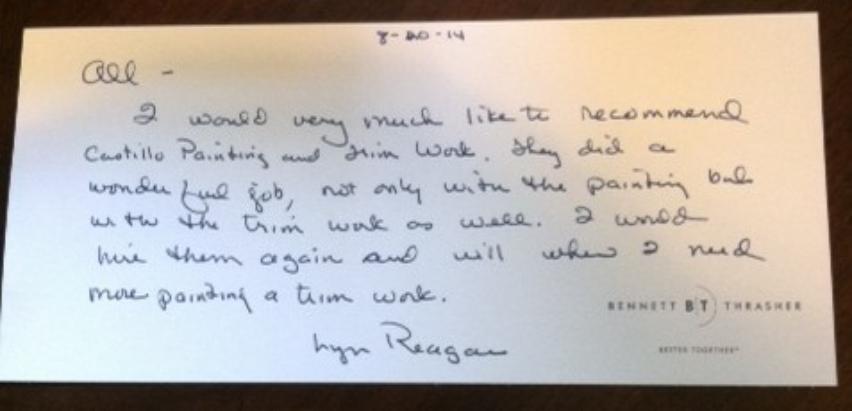 8-20-14
All -
I would very much like to recommend
Castillo Painting and Trim Work. They did a
wonderful job, not only with the painting but
with the trim work as well. I would
hire them again and will when I need
more painting a trim work.
Lyn Reagan
BENNETT BT THRASHER
BETTER TOGETHER